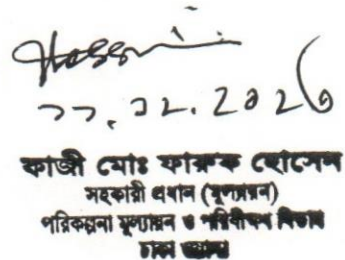 ১১.১২.২০১৬
কাজী মোঃ ফারুক হোসেন
সহকারী প্রধান (মূল্যায়ন)
পরিকল্পনা মূল্যায়ন ও পরিবীক্ষণ বিভাগ